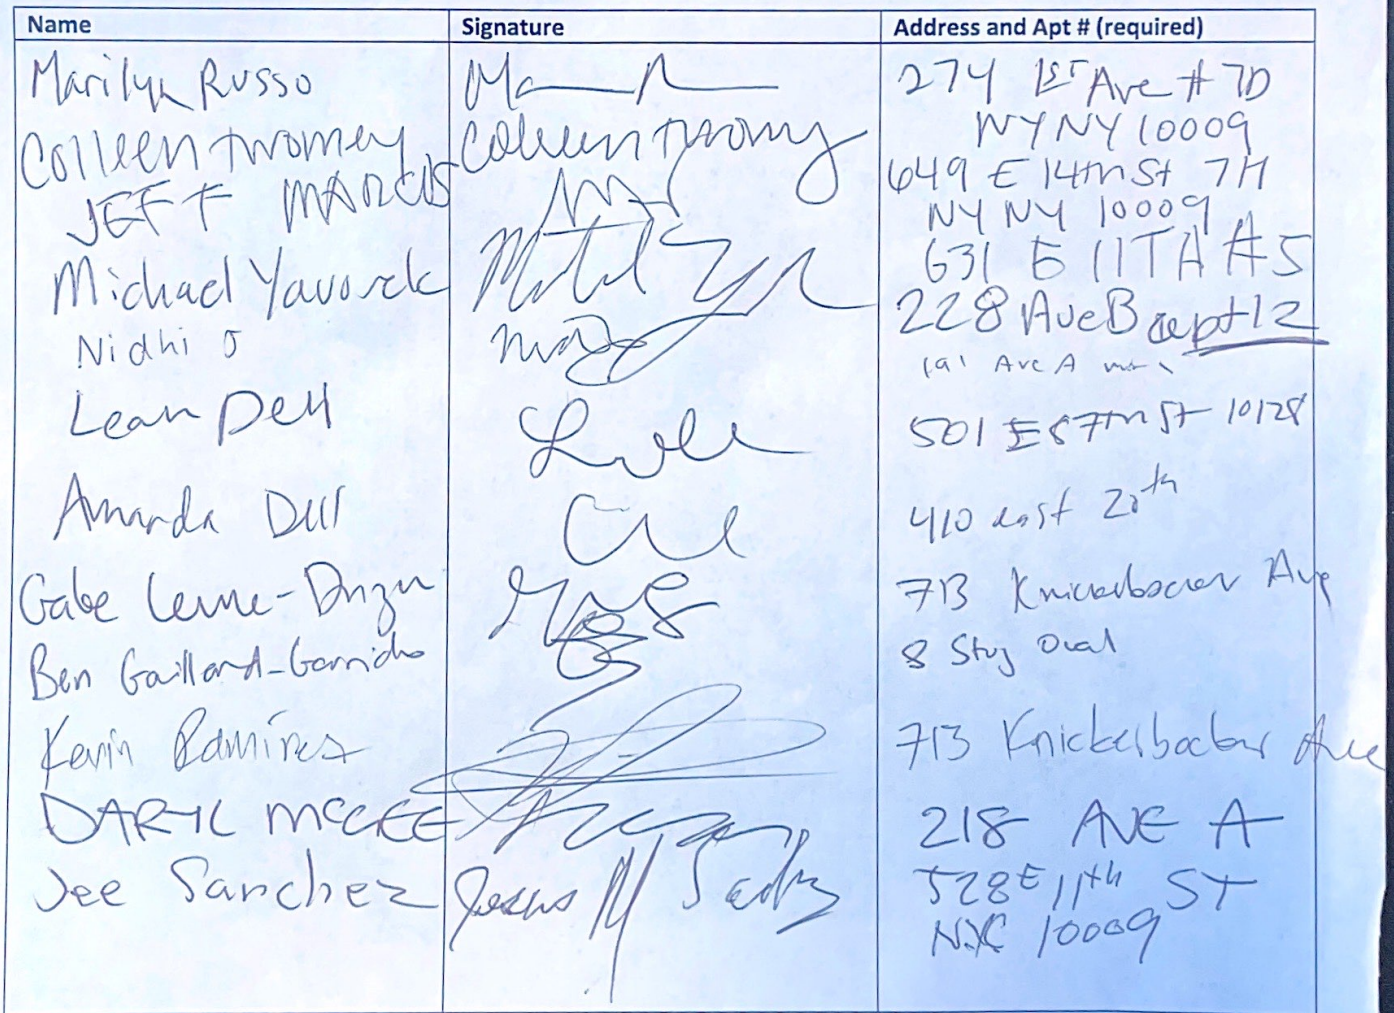 Name Signature Address and Apt # (required)
Marilyn Russo 274 1ST Ave # 7D
NY NY 10009
Colleen twomey Colleen twomy 649 E 14th St 7H
NY NY 10009
JEFF MARCUS 631 E 11TH #5
Michael 228 Ave B apt 12
Nidhi J Ave A
Leah Dell 501 E 87th St 10128
Amanda Dill 410 east 20th
Gabe 713 Knickerbocker Ave
Ben Gaillard-Garrido 8 Stuy Oval
Kevin Ramirez 713 Knickerbocker Ave
DARYL MCGEE 218 AVE A
Jee Sanchez Jesus M Sanchez 528 E 11th ST
NYC 10009